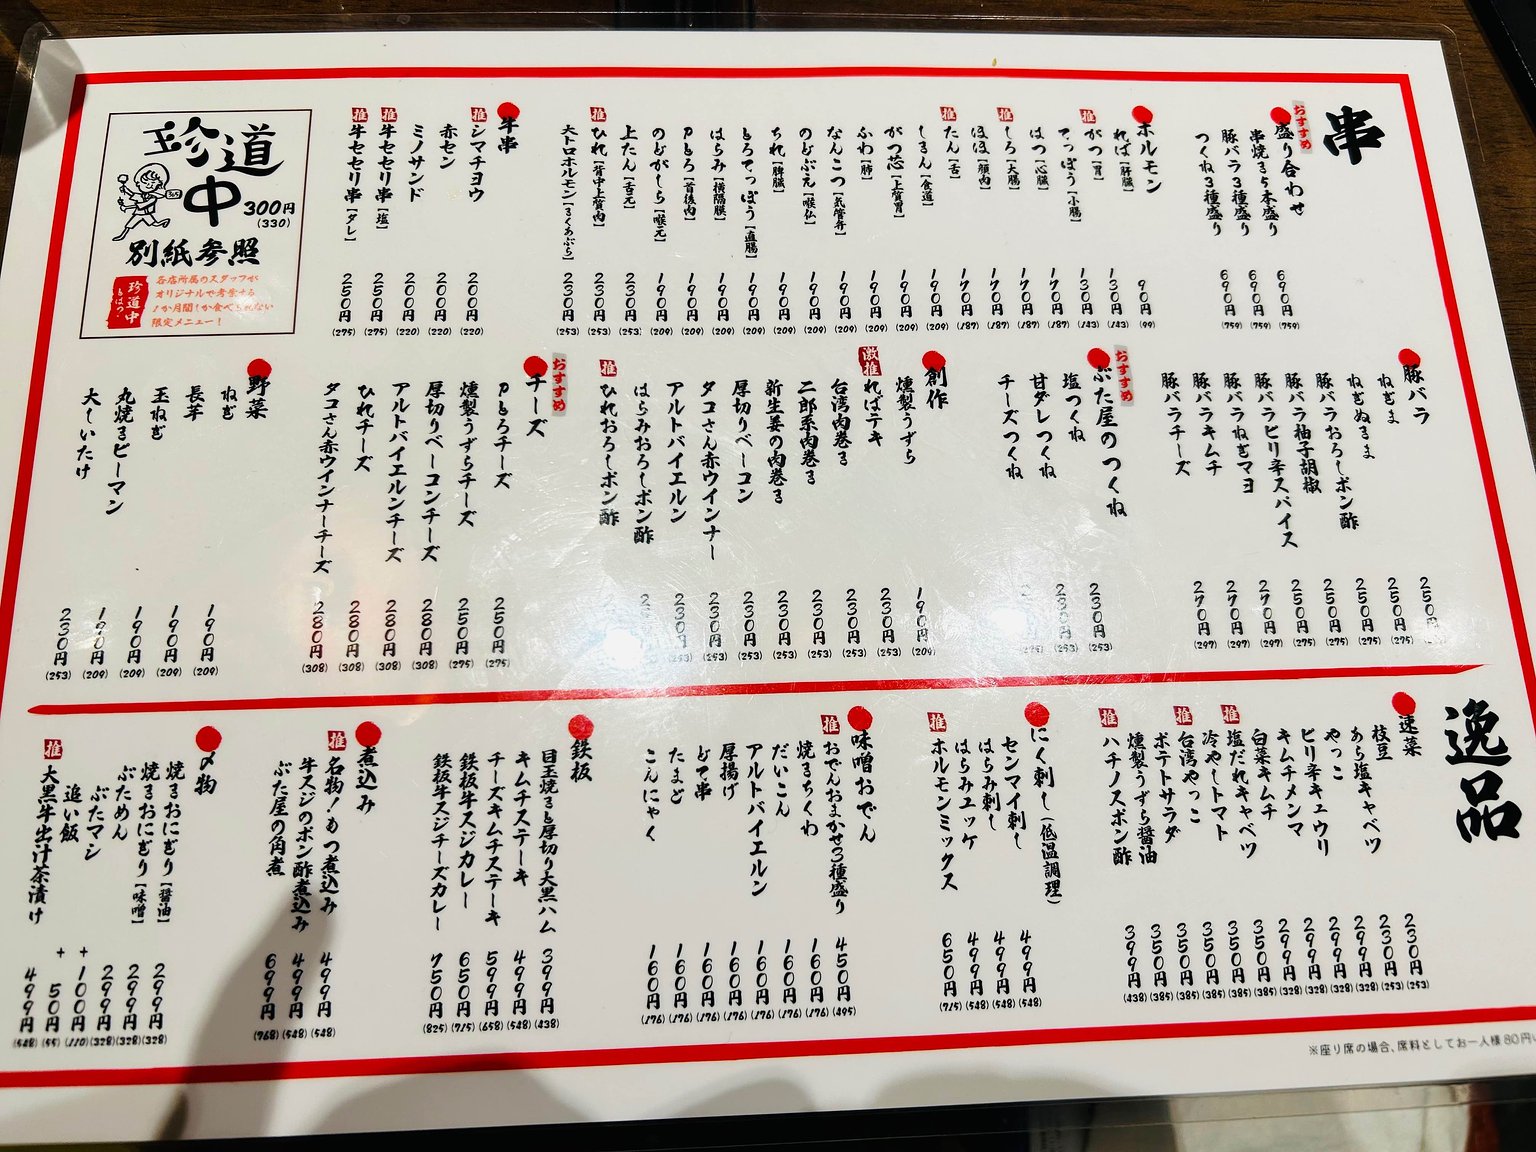 串
おすすめ
盛り合わせ
串焼き5本盛り 690円 (759)
豚バラ3種盛り 690円 (759)
つくね3種盛り 690円 (759)
ホルモン
れば[肝臓] 90円 (99)
推 がつ[胃] 130円 (143)
てっぽう[小腸] 130円 (143)
はつ[心臓] 170円 (187)
推 しろ[大腸] 170円 (187)
ほほ[頬肉] 170円 (187)
推 たん[舌] 170円 (187)
しきん[食道] 190円 (209)
がつ芯[上質胃] 190円 (209)
ふわ[肺] 190円 (209)
なんこつ[気管弁] 190円 (209)
のどぶえ[喉仏] 190円 (209)
ちれ[脾臓] 190円 (209)
もろてっぽう[直腸] 190円 (209)
はらみ[横隔膜] 190円 (209)
Pとろ[首後肉] 190円 (209)
のどがしら[喉元] 190円 (209)
上たん[舌元] 230円 (253)
推 ひれ[背中上質肉] 230円 (253)
大トロホルモン 230円 (253)
牛串
推 シマチョウ 200円 (220)
赤セン 200円 (220)
ミノサンド 200円 (220)
推 牛セセリ串[塩] 250円 (275)
推 牛セセリ串[タレ] 250円 (275)
珍道中
300円
(330)
別紙参照
珍道中 もばつ。
各店所属のスタッフが
オリジナルで考案する
1か月間しか食べられない
限定メニュー!
豚バラ
ねぎま 250円
ねぎぬきま 250円 (275)
豚バラおろしポン酢 250円 (275)
豚バラ柚子胡椒 250円 (275)
豚バラピリ辛スパイス 250円 (275)
豚バラねぎマヨ 270円 (297)
豚バラキムチ 270円 (297)
豚バラチーズ 270円 (297)
おすすめ
ぶた屋のつくね
塩つくね 230円 (253)
甘ダレつくね 230円 (253)
チーズつくね (275)
創作
燻製うずら 190円 (209)
激推 ればテキ 230円 (253)
台湾肉巻き 230円 (253)
二郎系肉巻き 230円 (253)
新生姜の肉巻き 230円 (253)
厚切りベーコン 230円 (253)
タコさん赤ウインナー 230円 (253)
アルトバイエルン 230円 (253)
はらみおろしポン酢
推 ひれおろしポン酢
おすすめ
チーズ
Pとろチーズ 250円 (275)
燻製うずらチーズ 250円 (275)
厚切りベーコンチーズ 280円 (308)
アルトバイエルンチーズ 280円 (308)
ひれチーズ 280円 (308)
タコさん赤ウインナーチーズ 280円 (308)
野菜
ねぎ 190円 (209)
長芋 190円 (209)
玉ねぎ 190円 (209)
丸焼きピーマン 190円 (209)
大しいたけ 230円 (253)
逸品
速菜
枝豆 230円 (253)
あら塩キャベツ 230円 (253)
やっこ 299円 (328)
ピリ辛キュウリ 299円 (328)
キムチメンマ 299円 (328)
白菜キムチ 299円 (328)
推 塩だれキャベツ 350円 (385)
冷やしトマト 350円 (385)
推 台湾やっこ 350円 (385)
ポテトサラダ 350円 (385)
燻製うずら醤油 350円 (385)
推 ハチノスポン酢 399円 (438)
にく刺し(低温調理)
センマイ刺し 499円 (548)
はらみ刺し 499円 (548)
はらみユッケ 499円 (548)
推 ホルモンミックス 650円 (715)
味噌おでん
推 おでんおまかせ3種盛り 450円 (495)
焼きちくわ 160円 (176)
だいこん 160円 (176)
アルトバイエルン 160円 (176)
厚揚げ 160円 (176)
どて串 160円 (176)
たまご 160円 (176)
こんにゃく 160円 (176)
鉄板
目玉焼きと厚切り大黒ハム 399円 (438)
キムチステーキ 499円 (548)
チーズキムチステーキ 599円 (658)
鉄板牛スジカレー 650円 (715)
鉄板牛スジチーズカレー 750円 (825)
煮込み
推 名物!もつ煮込み 499円 (548)
牛スジのポン酢煮込み 499円 (548)
ぶた屋の角煮 699円 (768)
〆物
焼きおにぎり[醤油] 299円 (328)
焼きおにぎり[味噌] 299円 (328)
ぶためん 299円 (328)
ぶたマシ +100円 (110)
追い飯 +50円 (55)
推 大黒牛出汁茶漬け 499円 (548)
※座り席の場合、席料としてお一人様80円